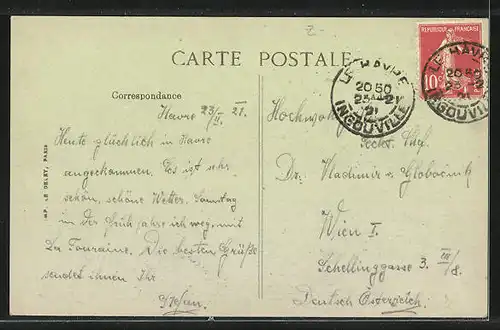 CARTE POSTALE
REPUBLIQUE FRANÇAISE
10c
LE HAVRE
20 50
23 - 2 21
INGOUVILLE
LE HAVRE
20 50
INGOUVILLE
Correspondance
Havre 23/II. 21.
Heute glücklich in Havre
angekommen. Es ist sehr
schön, schöne Wetter. Sonntag
in der früh fahre ich weg mit
La Touraine. Die besten Grüße
sendet ihnen Ihr
Stefan.
Hochwohlg
Dr. Vladimir v. Globočnik
Wien I.
Schellinggasse 3. III/8.
Deutsch Österreich.
LE DELEY, PARIS